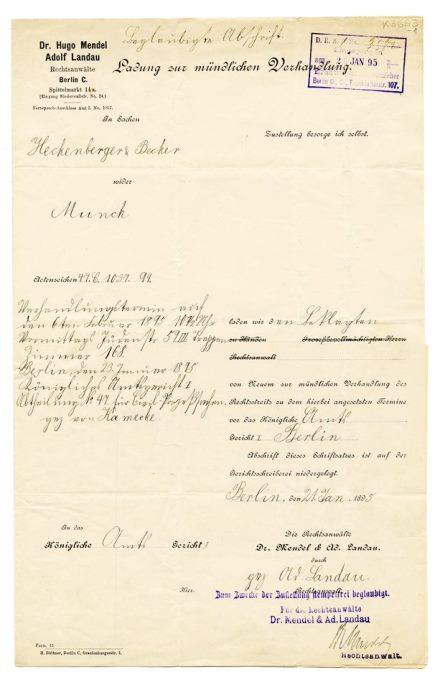 Beglaubigte Abschrift.
Dr. Hugo Mendel
Adolf Landau
Rechtsanwälte
Berlin C.
Spittelmarkt 14a.
(Eingang Niederwallstr. No. 24.)
Fernsprech-Anschluss Amt I. No. 1857.
2 JAN 95
107.
Ladung zur mündlichen Verhandlung.
In Sachen
Zustellung besorge ich selbst.
Heckenberger & Becker
wider
Munch
Actenzeichen 47. C. 1037. 94.
Verhandlungstermin auf
den 6ten Februar 1895 10¾ Uhr
Vormittags Jüdenstr 59 III Treppen
Zimmer 168.
Berlin, den 23 Januar 1895
Königliches Amtsgericht I
Abtheilung 47 für Civil-Prozeßsachen.
gez von Kamecke
laden wir den Beklagten
zu Händen Prozeßbevollmächtigten Herrn
Rechtsanwalt
von Neuem zur mündlichen Verhandlung des
Rechtsstreits zu dem hierbei angesetzten Termine
vor das Königliche Amts
Gericht I Berlin
Abschrift dieses Schriftsatzes ist auf der
Gerichtsschreiberei niedergelegt.
Berlin, den 21 Jan. 1895
An das
Königliche Amts Gericht I
Hier.
Die Rechtsanwälte
Dr. Mendel & Ad. Landau.
durch
gez Ad. Landau.
Rechtsanwalt.
Zum Zwecke der Zustellung stempelfrei beglaubigt.
Für die Rechtsanwälte
Dr. Mendel & Ad. Landau
Rechtsanwalt.
Form. 11
H. Büttner, Berlin C.